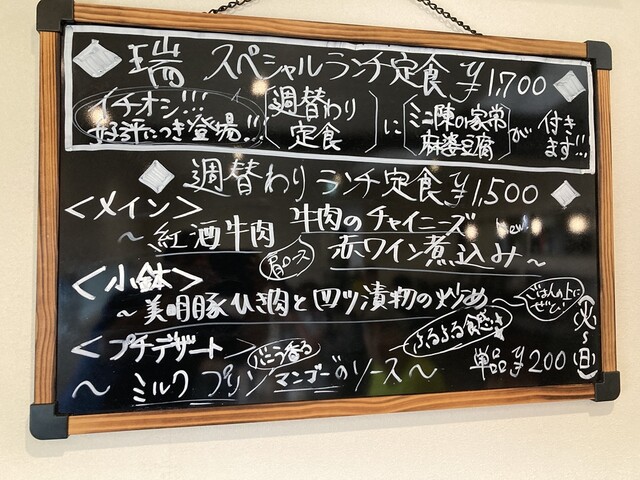 瑞 スペシャルランチ定食 ¥1,700
イチオシ!!!
好評につき登場!!
週替わり定食 に ミニ陳の家常麻婆豆腐 が 付きます!!!
週替わりランチ定食 ¥1,500
<メイン>
牛肉のチャイニーズ New!
~紅酒牛肉 赤ワイン煮込み~
肩ロース
<小鉢>
~美明豚ひき肉と四ツ漬物の炒め~
ごはんの上にぜひ!
<プチデザート>
バニラ香る
ぷるぷる食感
~ミルクプリン マンゴーのソース~
単品¥200
(火~日)